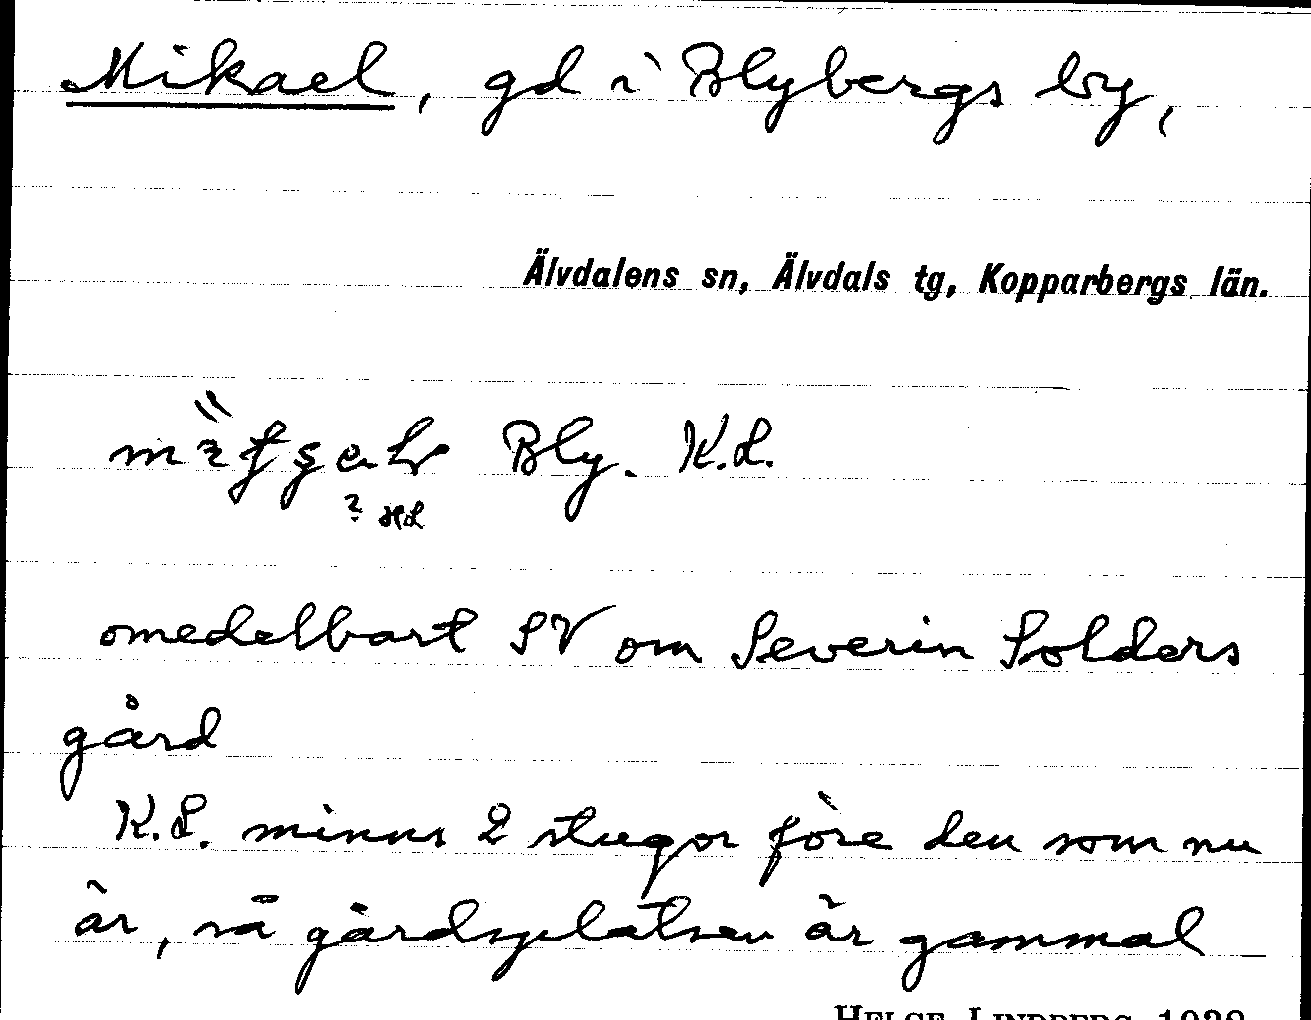 Mikael, gd i Blybergs by,
Älvdalens sn, Älvdals tg, Kopparbergs län.
Bly. K.L.
? HL
omedelbart SV om Severin Solders
gård
K.L. minns 2 stugor före den som nu
är, så gårdsplatsen är gammal
HELGE LINDBERG 1939